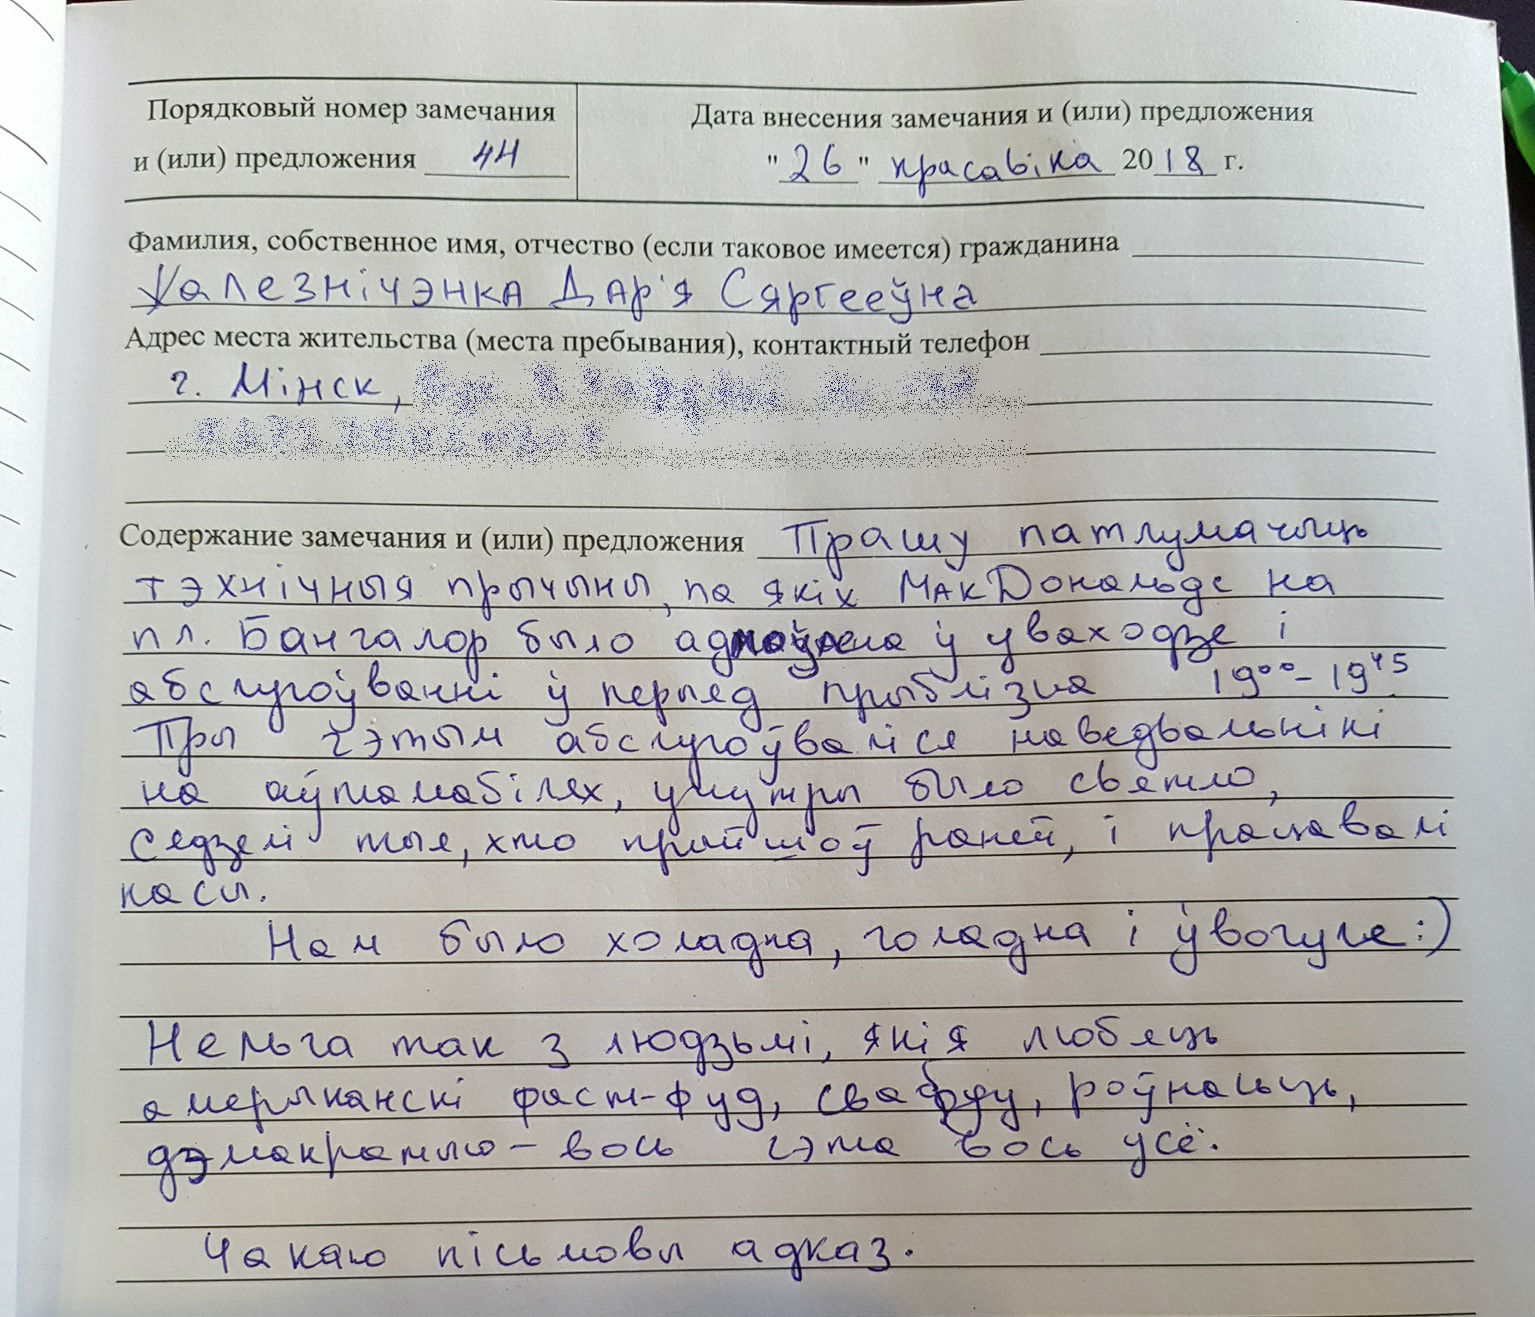 Порядковый номер замечания
и (или) предложения 44
Дата внесения замечания и (или) предложения
"26" красавіка 2018 г.
Фамилия, собственное имя, отчество (если таковое имеется) гражданина
Халезнічэнка Дар'я Сяргееўна
Адрес места жительства (места пребывания), контактный телефон
г. Мінск,
Содержание замечания и (или) предложения Прашу патлумачыць
тэхнічныя прычыны, па якіх МакДональдс на
пл. Бангалор было адмоўлена ў уваходзе і
абслугоўванні ў перыяд прыблізна 19⁰⁰-19⁴⁵
Пры гэтым абслугоўваліся наведвальнікі
на аўтамабілях, унутры было святло,
сядзелі тыя, хто прыйшоў раней, і працавалі
касы.
Нам было холадна, голадна і ўвогуле:)
Нельга так з людзьмі, якія любяць
амерыканскі фаст-фуд, свабоду, роўнасць,
дэмакратыю - вось гэта вось усё.
Чакаю пісьмовы адказ.